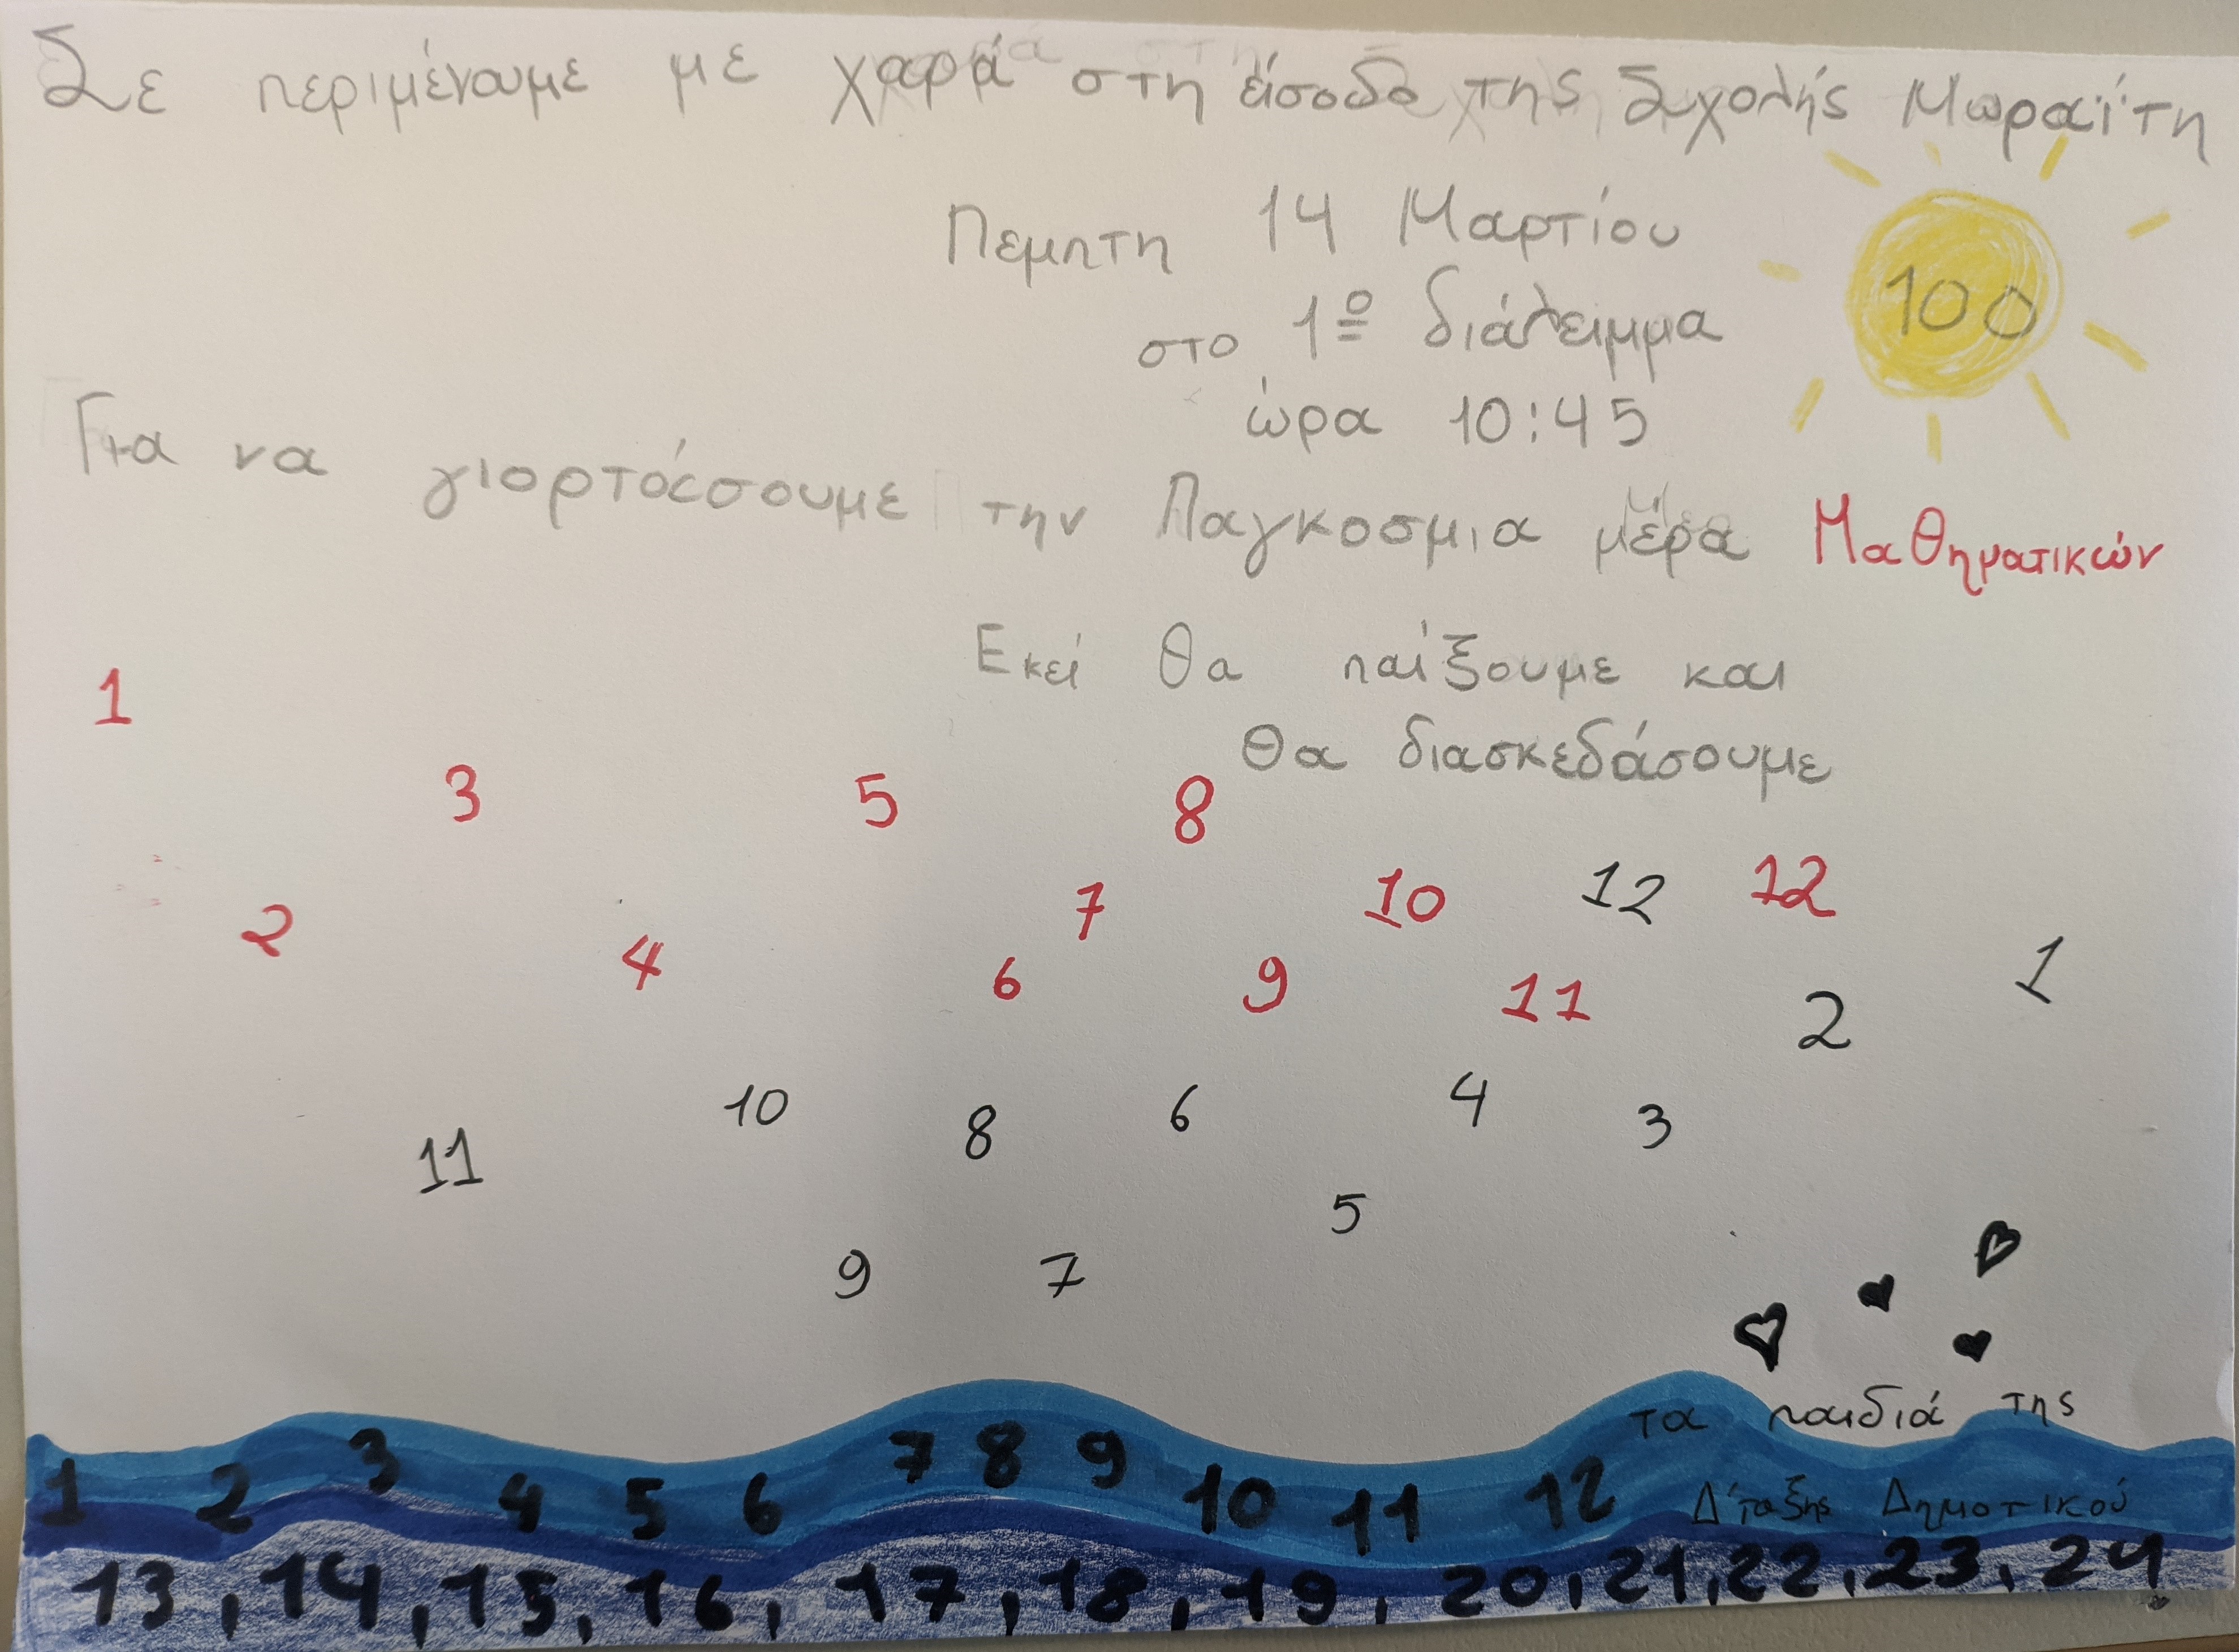 Σε περιμένουμε με χαρά στη είσοδο της Σχολής Μωραΐτη
Πεμπτη 14 Μαρτίου
στο 1º διάλειμμα
100
ώρα 10:45
Για να γιορτάσουμε την Παγκοσμια μέρα Μαθηματικών
Εκεί θα παίξουμε και
θα διασκεδάσουμε
1
3 5 8
2 4 6 7 9 10 11 12 12
1
2
11 10 8 6 4 3
5
9 7
τα παιδιά της
Δ' ταξης Δημοτικού
1 2 3 4 5 6 7 8 9 10 11 12
13, 14, 15, 16, 17, 18, 19, 20, 21, 22, 23, 24